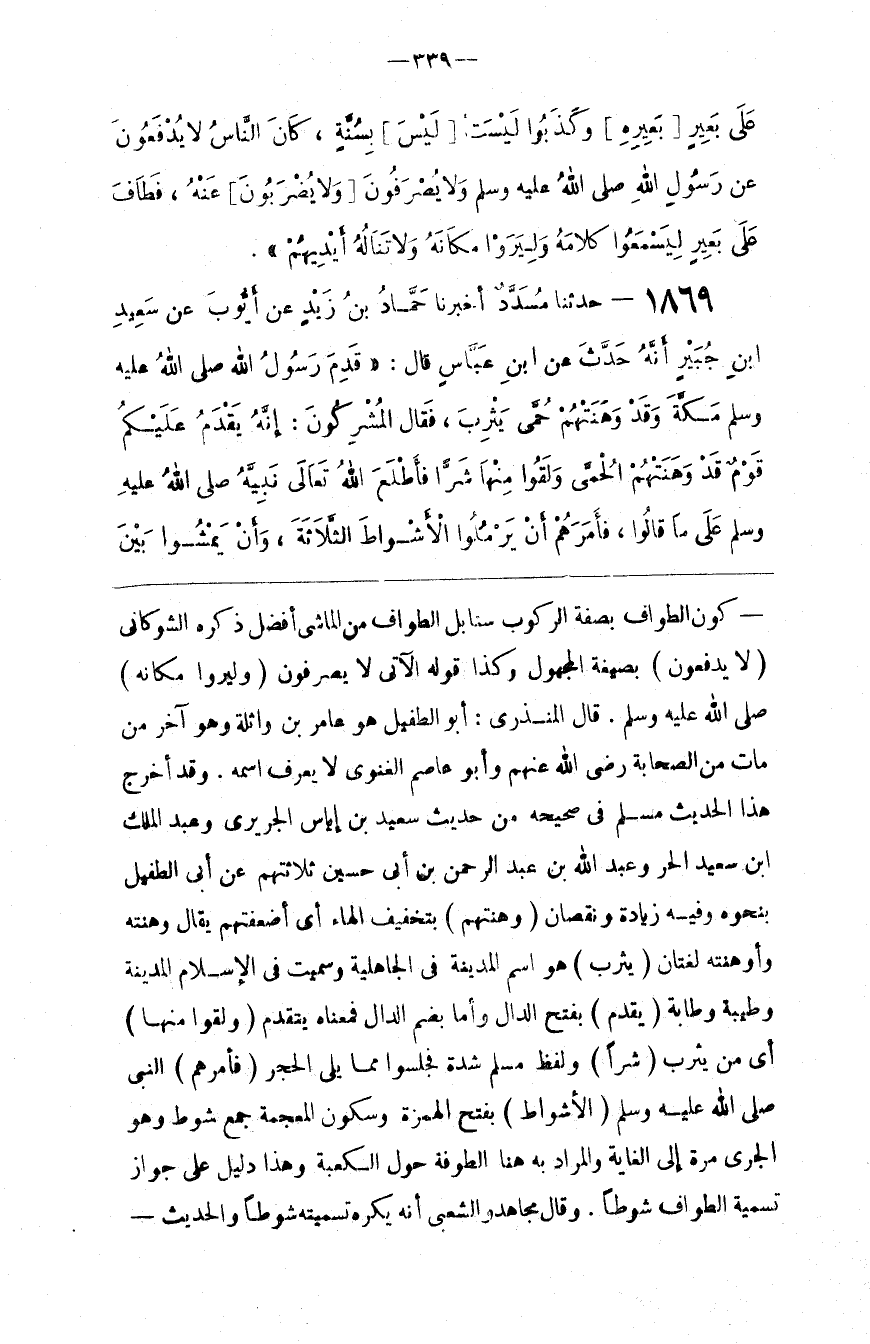 —٣٣٩—
عَلَى بَعِيرٍ [ بَعِيرِهِ ] وَكَذَبُوا لَيْسَتْ [ لَيْسَ ] بِسُنَّةٍ ، كَانَ النَّاسُ لا يُدْفَعُونَ
عن رَسُولِ اللهِ صلى اللهُ عليه وسلم وَلا يُصْرَفُونَ [ وَلا يُضْرَبُونَ ] عَنْهُ ، فَطَافَ
عَلَى بَعِيرٍ لِيَسْمَعُوا كلامَهُ وَلِيَرَوْا مكانَهُ وَلا تَنَالُهُ أَيْدِيهِمْ » .
١٨٦٩ — حدثنا مُسَدَّدٌ أخبرنا حَمَّـادُ بنُ زَيْدٍ عن أَيُّوبَ عن سَعِيدِ
ابنِ جُبَيْرٍ أَنَّهُ حَدَّثَ عن ابنِ عَبَّاسٍ قال : « قَدِمَ رَسُولُ الله صلى اللهُ عليه
وسلم مَـكَّةَ وَقَدْ وَهَنَتْهُمْ حُمَّى يَثْرِبَ ، فَقال المُشْرِكُونَ : إِنَّهُ يَقْدَمُ عَلَيْـكُمُ
قَوْمٌ قَدْ وَهَنَتْهُمْ الْحُمَّى وَلَقُوا مِنْهَا شَرًّا فأَطْلَعَ اللهُ تَعَالَى نَبِيَّهُ صلى اللهُ عليهِ
وسلم عَلَى ما قالُوا ، فأَمَرَهُمْ أَنْ يَرْمُلُوا الْأَشْـوَاطَ الثَّلاَثَةَ ، وَأَنْ يَمْشُـوا بَيْنَ
— كون الطواف بصفة الركوب سنا بل الطواف من الماشى أفضل ذكره الشوكانى
( لا يدفعون ) بصيغة المجهول وكذا قوله الآتى لا يصرفون ( وليروا مكانه )
صلى الله عليه وسلم . قال المنـذرى : أبو الطفيل هو عامر بن واثلة وهو آخر من
مات من الصحابة رضى الله عنهم وأبو عاصم الغنوى لا يعرف اسمه . وقد أخرج
هذا الحديث مسـلم فى صحيحه من حديث سعيد بن إياس الجريرى وعبد الملك
ابن سعيد الحر وعبد الله بن عبد الرحمن بن أبى حسين ثلاثتهم عن أبى الطفيل
بنحوه وفيـه زيادة ونقصان ( وهنتهم ) بتخفيف الهاء أى أضعفتهم يقال وهنته
وأوهنته لغتان ( يثرب ) هو اسم المدينة فى الجاهلية وسميت فى الإسـلام المدينة
وطيبة وطابة ( يقدم ) بفتح الدال وأما بضم الدال فمعناه يتقدم ( ولقوا منهـا )
أى من يثرب ( شراً ) ولفظ مسلم شدة فجلسوا ممـا يلى الحجر ( فأمرهم ) النبى
صلى الله عليـه وسلم ( الأشواط ) بفتح الهمزة وسكون المعجمة جمع شوط وهو
الجرى مرة إلى الغاية والمراد به هنا الطوفة حول الـكعبة وهذا دليل على جواز
تسمية الطواف شوطاً . وقال مجاهد والشعبى أنه يكره تسميته شوطاً والحديث —